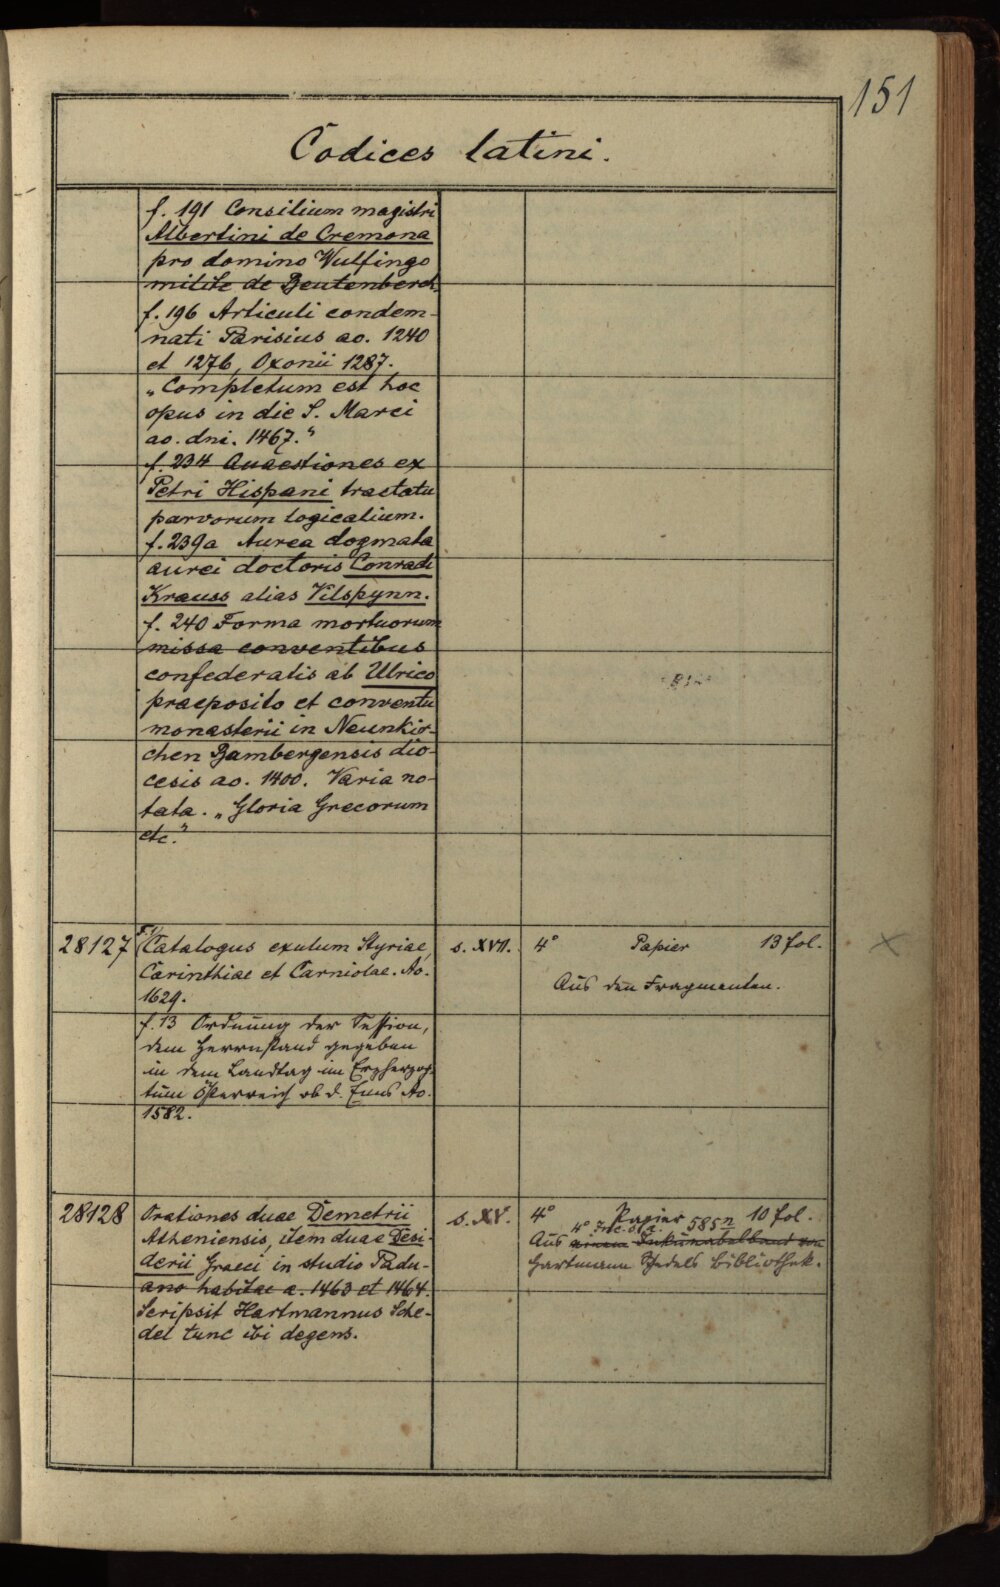 151
Codices latini.
f. 191 Consilium magistri
Albertini de Cremona
pro domino Wulfingo
milite de Beutenberch.
f. 196 Articuli condem-
nati Parisius ao. 1240
et 1276, Oxonii 1287.
„Completum est hoc
opus in die S. Marci
ao. dni. 1467.“
f. 234 Quaestiones ex
Petri Hispani tractatu
parvorum logicalium.
f. 239a Aurea dogmata
aurei doctoris Conradi
Krauss alias Vilspynn.
f. 240 Forma mortuorum
missa conventibus
confederatis ab Ulrico
praeposito et conventu
monasterii in Neunkir-
chen Bambergensis dio-
cesis ao. 1400. Varia no-
tata. „Gloria Grecorum
etc.“
28127 Catalogus exulum Styriae, s. XVII. 4° Papier 13 fol.
Carinthiae et Carniolae. Ao.
1629.
Aus den Fragmenten.
f. 13 Ordnung der Session,
dem Herrnstand gegeben
in dem Landtag im Erzherzog-
tum Österreich ob d. Enns Ao.
1582.
28128 Orationes duae Demetrii s. XV. 4° Papier 10 fol.
Atheniensis, item duae Desi-
derii Graeci in studio Padu-
ano habitae a. 1463 et 1464.
Scripsit Hartmannus Sche-
del tunc ibi degens.
4° Inc. s. a. 585n
Aus einem Inkunabelband von
Hartmann Schedels Bibliothek.